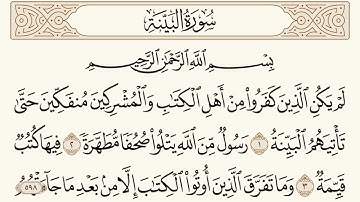 سُورَةُ البَيِّنَةِ
بِسْمِ اللَّهِ الرَّحْمَٰنِ الرَّحِيمِ
لَمْ يَكُنِ الَّذِينَ كَفَرُوا مِنْ أَهْلِ الْكِتَابِ وَالْمُشْرِكِينَ مُنفَكِّينَ حَتَّىٰ
تَأْتِيَهُمُ الْبَيِّنَةُ ١ رَسُولٌ مِّنَ اللَّهِ يَتْلُوا صُحُفًا مُّطَهَّرَةً ٢ فِيهَا كُتُبٌ
قَيِّمَةٌ ٣ وَمَا تَفَرَّقَ الَّذِينَ أُوتُوا الْكِتَابَ إِلَّا مِنْ بَعْدِ مَا جَاءَتْهُمُ
٥٩٨